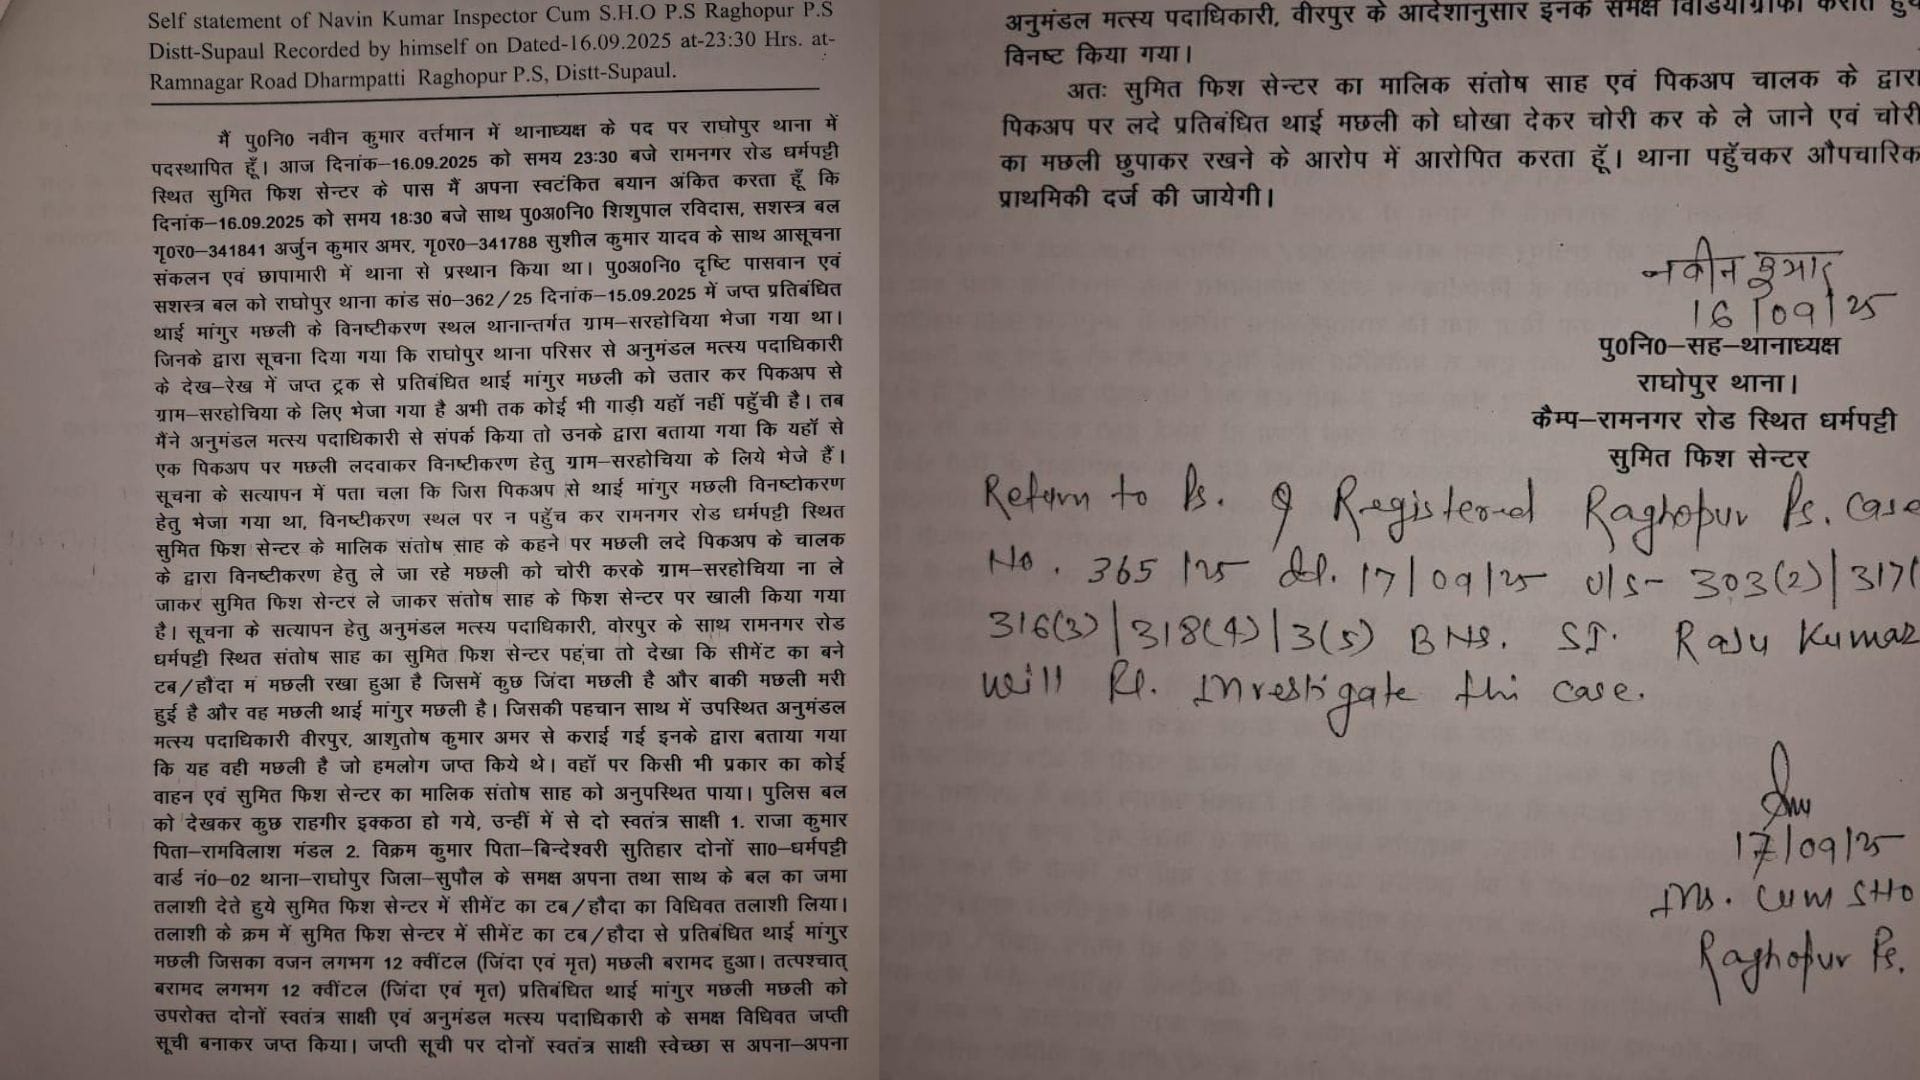 Self statement of Navin Kumar Inspector Cum S.H.O P.S Raghopur P.S
Distt-Supaul Recorded by himself on Dated-16.09.2025 at-23:30 Hrs. at-
Ramnagar Road Dharmpatti Raghopur P.S, Distt-Supaul.
मैं पु0नि0 नवीन कुमार वर्त्तमान में थानाध्यक्ष के पद पर राघोपुर थाना में
पदस्थापित हूँ। आज दिनांक–16.09.2025 को समय 23:30 बजे रामनगर रोड धर्मपट्टी
स्थित सुमित फिश सेन्टर के पास मैं अपना स्वटंकित बयान अंकित करता हूँ कि
दिनांक–16.09.2025 को समय 18:30 बजे साथ पु0अ0नि0 शिशुपाल रविदास, सशस्त्र बल
गृ0र0–341841 अर्जुन कुमार अमर, गृ0र0–341788 सुशील कुमार यादव के साथ आसूचना
संकलन एवं छापामारी में थाना से प्रस्थान किया था। पु0अ0नि0 दृष्टि पासवान एवं
सशस्त्र बल को राघोपुर थाना कांड सं0–362/25 दिनांक–15.09.2025 में जप्त प्रतिबंधित
थाई मांगुर मछली के विनष्टीकरण स्थल थानान्तर्गत ग्राम–सरहोचिया भेजा गया था।
जिनके द्वारा सूचना दिया गया कि राघोपुर थाना परिसर से अनुमंडल मत्स्य पदाधिकारी
के देख–रेख में जप्त ट्रक से प्रतिबंधित थाई मांगुर मछली को उतार कर पिकअप से
ग्राम–सरहोचिया के लिए भेजा गया है अभी तक कोई भी गाड़ी यहॉ नहीं पहुँची है। तब
मैंने अनुमंडल मत्स्य पदाधिकारी से संपर्क किया तो उनके द्वारा बताया गया कि यहॉ से
एक पिकअप पर मछली लदवाकर विनष्टीकरण हेतु ग्राम–सरहोचिया के लिये भेजे हैं।
सूचना के सत्यापन में पता चला कि जिस पिकअप से थाई मांगुर मछली विनष्टोकरण
हेतु भेजा गया था, विनष्टीकरण स्थल पर न पहुँच कर रामनगर रोड धर्मपट्टी स्थित
सुमित फिश सेन्टर के मालिक संतोष साह के कहने पर मछली लदे पिकअप के चालक
के द्वारा विनष्टीकरण हेतु ले जा रहे मछली को चोरी करके ग्राम–सरहोचिया ना ले
जाकर सुमित फिश सेन्टर ले जाकर संतोष साह के फिश सेन्टर पर खाली किया गया
है। सूचना के सत्यापन हेतु अनुमंडल मत्स्य पदाधिकारी, वोरपुर के साथ रामनगर रोड
धर्मपट्टी स्थित संतोष साह का सुमित फिश सेन्टर पहुंचा तो देखा कि सीमेंट का बने
टब/हौदा म मछली रखा हुआ है जिसमें कुछ जिंदा मछली है और बाकी मछली मरी
हुई है और वह मछली थाई मांगुर मछली है। जिसकी पहचान साथ में उपस्थित अनुमंडल
मत्स्य पदाधिकारी वीरपुर, आशुतोष कुमार अमर से कराई गई इनके द्वारा बताया गया
कि यह वही मछली है जो हमलोग जप्त किये थे। वहॉ पर किसी भी प्रकार का कोई
वाहन एवं सुमित फिश सेन्टर का मालिक संतोष साह को अनुपस्थित पाया। पुलिस बल
को देखकर कुछ राहगीर इक्कठा हो गये, उन्हीं में से दो स्वतंत्र साक्षी 1. राजा कुमार
पिता–रामविलाश मंडल 2. विक्रम कुमार पिता–बिन्देश्वरी सुतिहार दोनों सा0–धर्मपट्टी
वार्ड नं0–02 थाना–राघोपुर जिला–सुपौल के समक्ष अपना तथा साथ के बल का जमा
तलाशी देते हुये सुमित फिश सेन्टर में सीमेंट का टब/हौदा का विधिवत तलाशी लिया।
तलाशी के क्रम में सुमित फिश सेन्टर में सीमेंट का टब/हौदा से प्रतिबंधित थाई मांगुर
मछली जिसका वजन लगभग 12 क्वींटल (जिंदा एवं मृत) मछली बरामद हुआ। तत्पश्चात्
बरामद लगभग 12 क्वींटल (जिंदा एवं मृत) प्रतिबंधित थाई मांगुर मछली मछली को
उपरोक्त दोनों स्वतंत्र साक्षी एवं अनुमंडल मत्स्य पदाधिकारी के समक्ष विधिवत जप्ती
सूची बनाकर जप्त किया। जप्ती सूची पर दोनों स्वतंत्र साक्षी स्वेच्छा स अपना–अपना
अनुमंडल मत्स्य पदाधिकारी, वीरपुर के आदेशानुसार इनके समक्ष विडियोग्राफी कराते हुये
विनष्ट किया गया।
अतः सुमित फिश सेन्टर का मालिक संतोष साह एवं पिकअप चालक के द्वारा
पिकअप पर लदे प्रतिबंधित थाई मछली को धोखा देकर चोरी कर के ले जाने एवं चोरी
का मछली छुपाकर रखने के आरोप में आरोपित करता हूँ। थाना पहुँचकर औपचारिक
प्राथमिकी दर्ज की जायेगी।
नवीन कुमार
16/09/25
पु0नि0–सह–थानाध्यक्ष
राघोपुर थाना।
कैम्प–रामनगर रोड स्थित धर्मपट्टी
सुमित फिश सेन्टर
Return to Ps. & Registered Raghopur Ps. Case
No. 365/25 dt. 17/09/25 U/S- 303(2)/317(
316(3)/318(4)/3(5) BNS. SI. Raju Kumar
will Pl. Investigate thi case.
17/09/25
Ins. Cum SHO
Raghopur Ps.